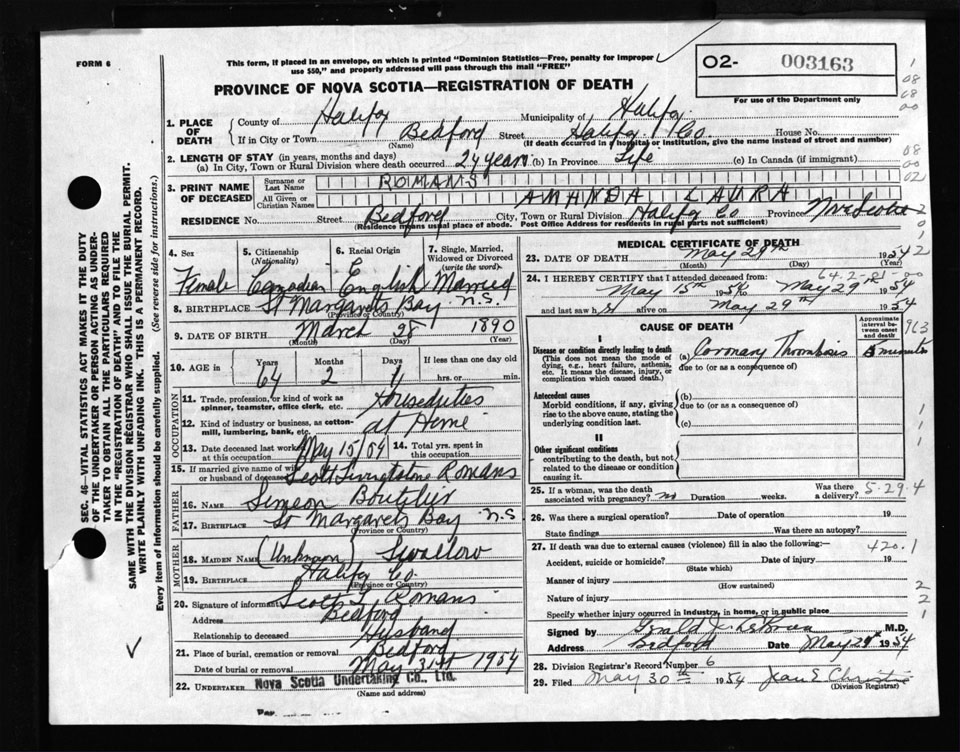 FORM 6
This form, if placed in an envelope, on which is printed "Dominion Statistics—Free, penalty for improper
use $50," and properly addressed will pass through the mail "FREE"
PROVINCE OF NOVA SCOTIA—REGISTRATION OF DEATH
O2- 003163
For use of the Department only
SEC. 46—VITAL STATISTICS ACT MAKES IT THE DUTY
OF THE UNDERTAKER OR PERSON ACTING AS UNDER-
TAKER TO OBTAIN ALL THE PARTICULARS REQUIRED
IN THE "REGISTRATION OF DEATH" AND TO FILE THE
SAME WITH THE DIVISION REGISTRAR WHO SHALL ISSUE THE BURIAL PERMIT.
WRITE PLAINLY WITH UNFADING INK. THIS IS A PERMANENT RECORD.
Every item of information should be carefully supplied. (See reverse side for instructions.)
1. PLACE OF DEATH County of Halifax Municipality of Halifax
If in City or Town Bedford Street Halifax Co House No.
(Name) (If death occurred in a hospital or institution, give the name instead of street and number)
2. LENGTH OF STAY (in years, months and days)
(a) In City, Town or Rural Division where death occurred 24 years (b) In Province Life (c) In Canada (if immigrant)
3. PRINT NAME OF DECEASED Surname or Last Name ROMANS
All Given or Christian Names AMANDA LAURA
RESIDENCE No. Street Bedford City, Town or Rural Division Halifax Co Province Nova Scotia
(Residence means usual place of abode. Post Office Address for rural parts not sufficient)
4. Sex 5. Citizenship (Nationality) 6. Racial Origin 7. Single, Married, Widowed or Divorced (write the word)
Female Canadian English Married
8. BIRTHPLACE St Margarets Bay N.S.
(Province or Country)
9. DATE OF BIRTH March 28 1890
(Month) (Day) (Year)
10. AGE in Years Months Days If less than one day old
64 2 1 hrs. or min.
OCCUPATION
11. Trade, profession, or kind of work as spinner, teamster, office clerk, etc. Houseduties
12. Kind of industry or business, as cotton-mill, lumbering, bank, etc. at Home
13. Date deceased last worked at this occupation May 15/54 14. Total yrs. spent in this occupation
15. If married give name of wife or husband of deceased Scott Livingstone Romans
FATHER
16. NAME Simeon Boutilier
17. BIRTHPLACE St Margarets Bay N.S
(Province or Country)
MOTHER
18. MAIDEN NAME (Unknown) Swallow
19. BIRTHPLACE Halifax Co.
(Province or Country)
20. Signature of informant Scott L. Romans
Address Bedford
Relationship to deceased Husband
21. Place of burial, cremation or removal Bedford
Date of burial or removal May 31st 1954
22. UNDERTAKER Nova Scotia Undertaking Co., Ltd.
(Name and address)
MEDICAL CERTIFICATE OF DEATH
23. DATE OF DEATH May 29th 1954
(Month) (Day) (Year)
24. I HEREBY CERTIFY that I attended deceased from:
May 15th 1954 to May 29th 1954
and last saw h alive on May 29th 1954
CAUSE OF DEATH
Approximate interval between onset and death
I
Disease or condition directly leading to death
(This does not mean the mode of dying, e.g., heart failure, asthenia, etc. It means the disease, injury, or complication which caused death.)
(a) Coronary Thrombosis minutes
due to (or as a consequence of)
Antecedent causes
Morbid conditions, if any, giving rise to the above cause, stating the underlying condition last.
(b)
due to (or as a consequence of)
(c)
II
Other significant conditions
contributing to the death, but not related to the disease or condition causing it.
25. If a woman, was the death associated with pregnancy? no Duration weeks. Was there a delivery?
5-29-4
26. Was there a surgical operation? Date of operation 19
State findings Was there an autopsy?
27. If death was due to external causes (violence) fill in also the following:—
420.1
Accident, suicide or homicide? Date of injury 19
(State which)
Manner of injury
(How sustained)
Nature of injury
Specify whether injury occurred in industry, in home, or in public place
Signed by Gerald J. M.D.
Address Bedford Date May 29th 1954
28. Division Registrar's Record Number 6
29. Filed May 30th 1954 Jean E Christie
(Division Registrar)